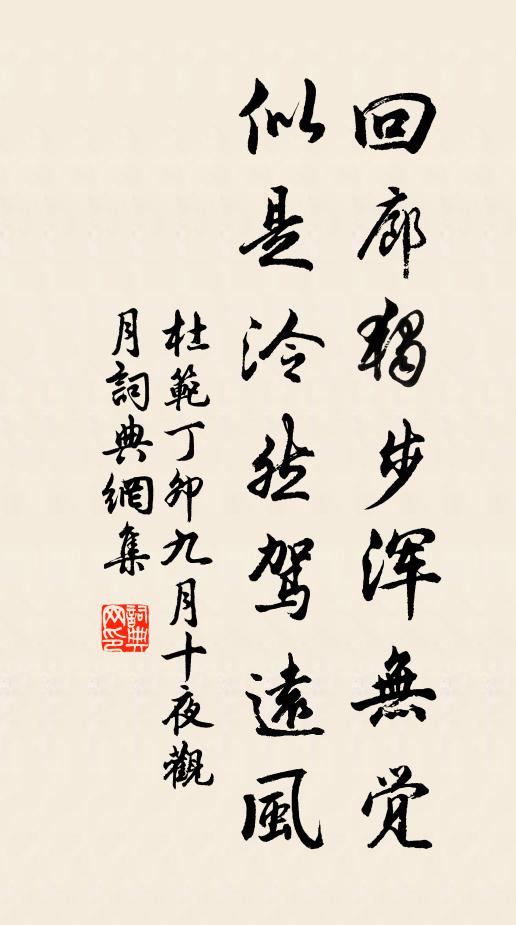 回廊独步浑無觉
似是泠然駕遠風
杜範丁卯九月十夜觀
月詞典網集
詞典
网印